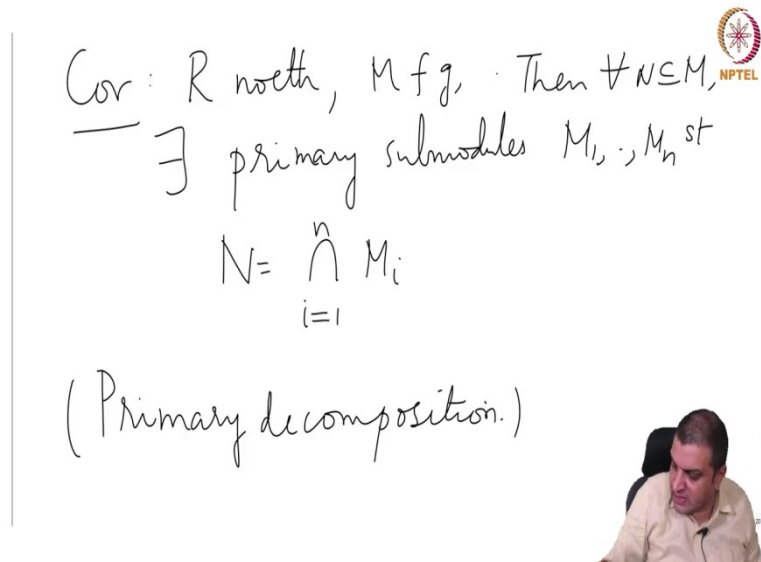 Cor: R noeth, M f g, . Then ∀ N ⊆ M,
∃ primary submodules M₁, .., Mₙ st
N = ⋂ᵢ₌₁ⁿ Mᵢ
(Primary decomposition.)
NPTEL